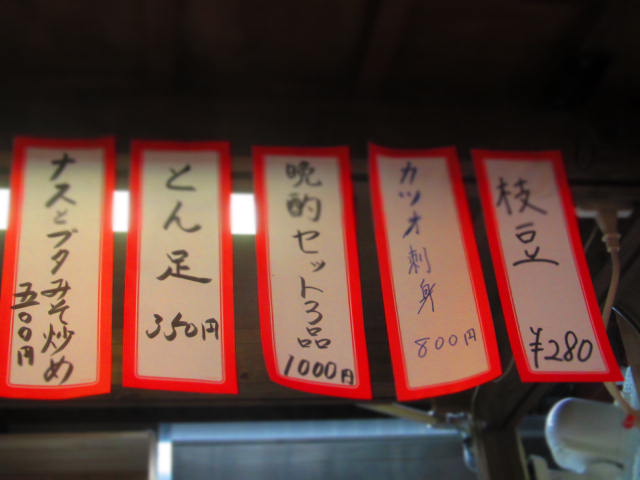 枝豆
¥280
カツオ刺身
800円
晩酌セット3品
1000円
とん足
350円
ナスとブタみそ炒め
五〇〇円